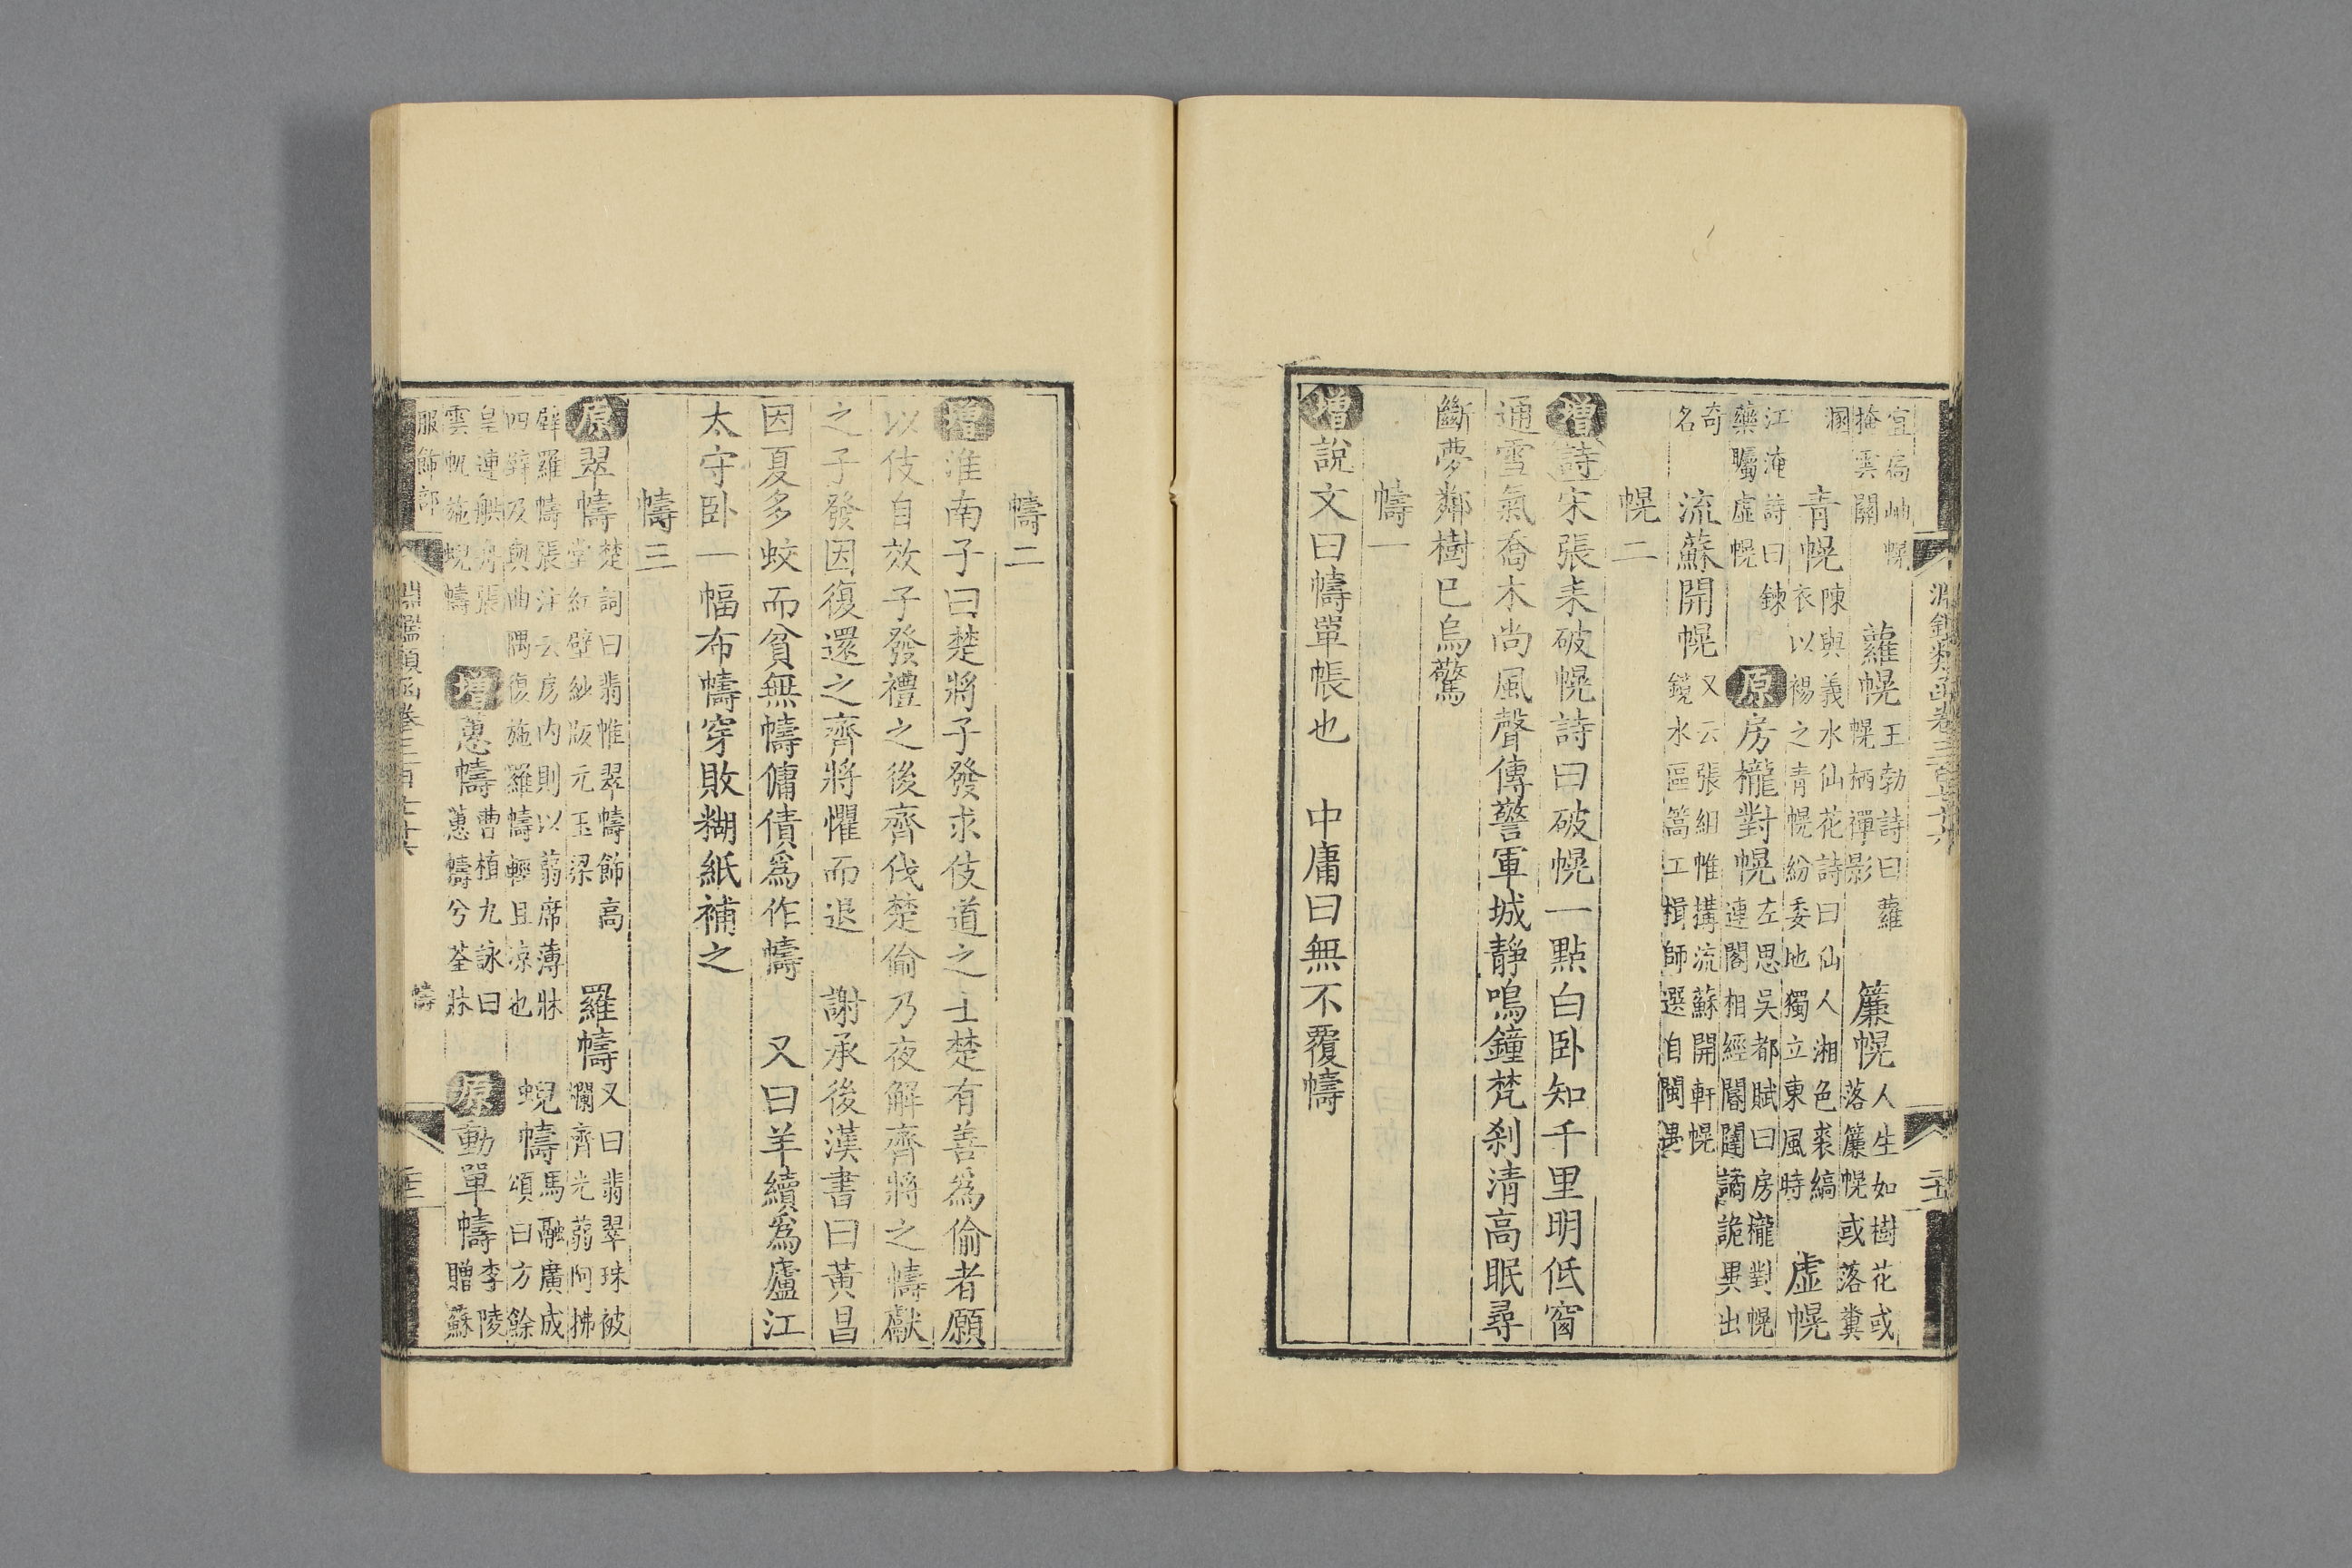 宜扃岫幌
掩雲關　蘿幌王勃詩曰蘿
幌栖禪影　簾幌人生如樹花或
落簾幌或落糞
溷　青幌陳與義水仙花詩曰仙人湘色裘縞
衣以裼之青幌紛委地獨立東風時　虛幌
江淹詩曰鍊
藥矚虛幌　原房櫳對幌左思吳都賦曰房櫳對幌
連閣相經閽闥譎詭異出
奇
名　流蘇開幌又云張組帷搆流蘇開軒幌
鏡水區篙工楫師選自閩禺
幌二
增詩宋張耒破幌詩曰破幌一點白卧知千里明低窗
通雪氣喬木尚風聲傳警軍城靜鳴鐘梵刹清高眠尋
斷夢鄰樹已烏驚
幬一
增說文曰幬單帳也　中庸曰無不覆幬
幬二
增淮南子曰楚將子發求伎道之士楚有善爲偷者願
以伎自效子發禮之後齊伐楚偷乃夜解齊將之幬獻
之子發因復還之齊將懼而退　謝承後漢書曰黃昌
因夏多蚊而貧無幬傭債爲作幬　又曰羊續爲廬江
太守卧一幅布幬穿敗糊紙補之
幬三
原翠幬楚詞曰翡帷翠幬飾高
堂紅壁紗版元玉梁　羅幬又曰翡翠珠被
爛齊光蒻阿拂
壁羅幬張注云房内則以蒻席薄牀
四壁及與曲隅復施羅幬輕且涼也　蜺幬馬融廣成
頌曰方餘
皇連舼舟張
雲帆施蜺幬　增蕙幬曹植九詠曰
蕙幬兮荃牀　原動單幬李陵
贈蘇
服飾部
淵鑑類函卷三百七十六
幬